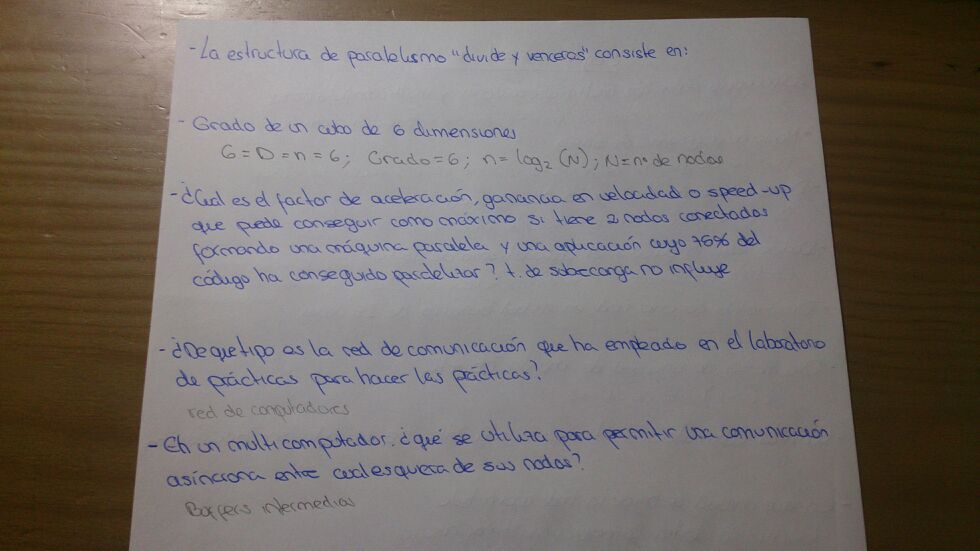 - La estructura de paralelismo "divide y venceras" consiste en:
- Grado de un cubo de 6 dimensiones
G = D = n = 6; Grado = 6; n = log₂ (N); N = nº de nodos
- ¿Cual es el factor de aceleración, ganancia en velocidad o speed-up
que puede conseguir como máximo si tiene 2 nodos conectados
formando una máquina paralela y una aplicación cuyo 75% del
código ha conseguido paralelizar? t. de sobrecarga no influye
- ¿De que tipo es la red de comunicación que ha empleado en el laboratorio
de prácticas para hacer las prácticas?
red de computadores
- En un multicomputador. ¿qué se utiliza para permitir una comunicación
asíncrona entre cualesquiera de sus nodos?
Buffers intermedios